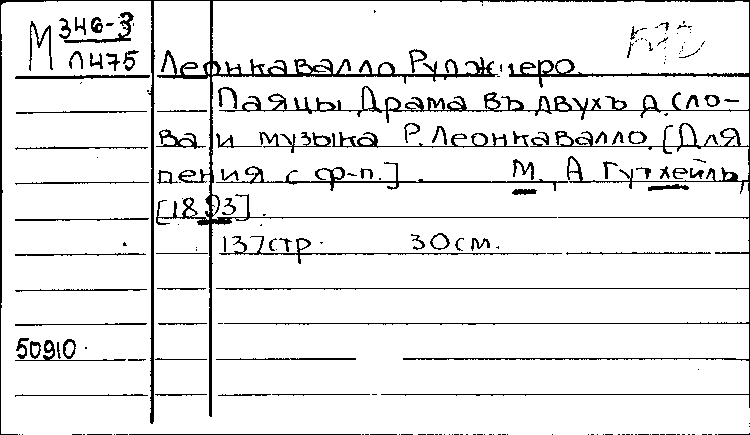 М 346-3
Л475
Леонкавалло, Руджиеро.
Паяцы Драма въ двухъ д. Сло-
ва и музыка Р. Леонкавалло. [Для
пения с ф-п.]. М., А Гутхейль,
[1893].
137стр. 30см.
50910